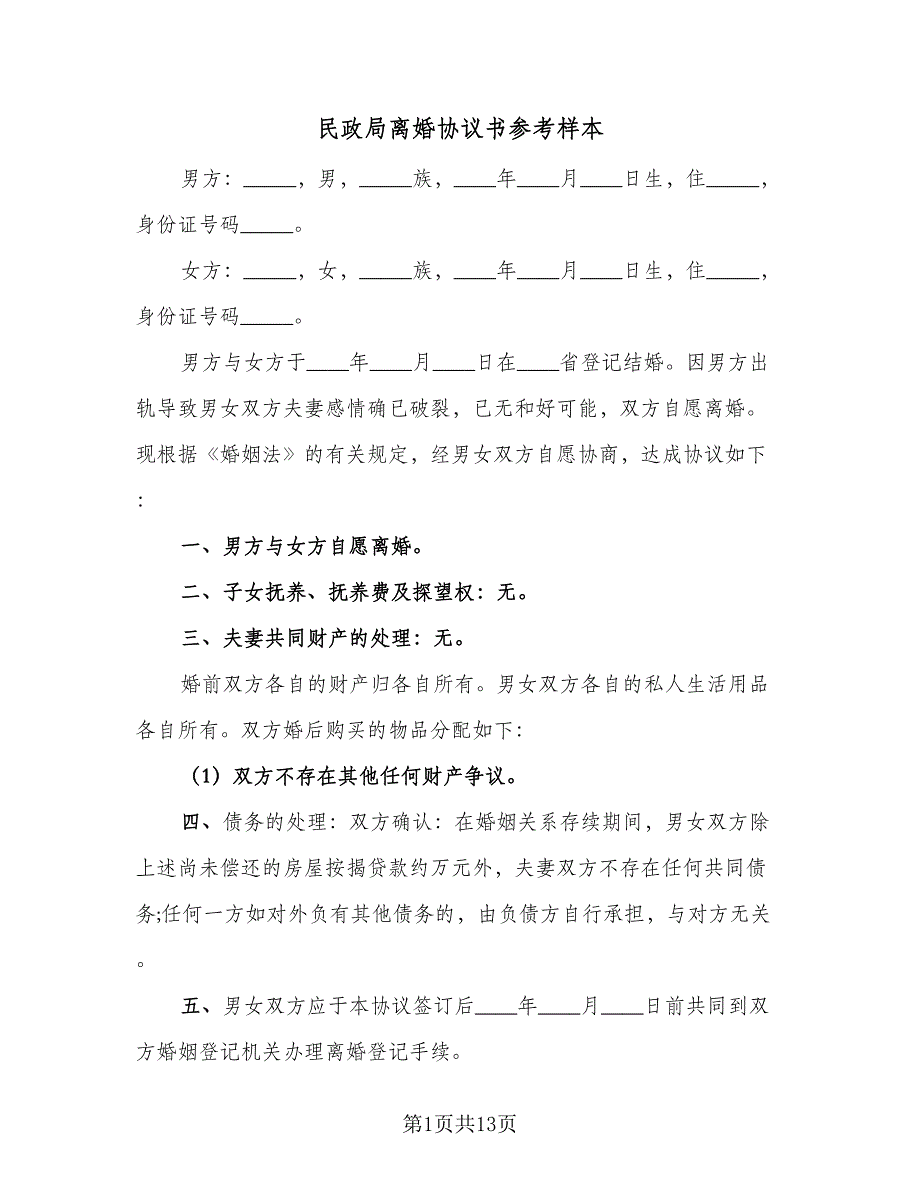 民政局离婚协议书参考样本
男方：_____，男，_____族，____年____月____日生，住_____，
身份证号码_____。
女方：_____，女，_____族，____年____月____日生，住_____，
身份证号码_____。
男方与女方于____年____月____日在____省登记结婚。因男方出
轨导致男女双方夫妻感情确已破裂，已无和好可能，双方自愿离婚。
现根据《婚姻法》的有关规定，经男女双方自愿协商，达成协议如下
：
一、男方与女方自愿离婚。
二、子女抚养、抚养费及探望权：无。
三、夫妻共同财产的处理：无。
婚前双方各自的财产归各自所有。男女双方各自的私人生活用品
各自所有。双方婚后购买的物品分配如下：
（1）双方不存在其他任何财产争议。
四、债务的处理：双方确认：在婚姻关系存续期间，男女双方除
上述尚未偿还的房屋按揭贷款约万元外，夫妻双方不存在任何共同债
务;任何一方如对外负有其他债务的，由负债方自行承担，与对方无关
。
五、男女双方应于本协议签订后____年____月____日前共同到双
方婚姻登记机关办理离婚登记手续。
第1页共13页